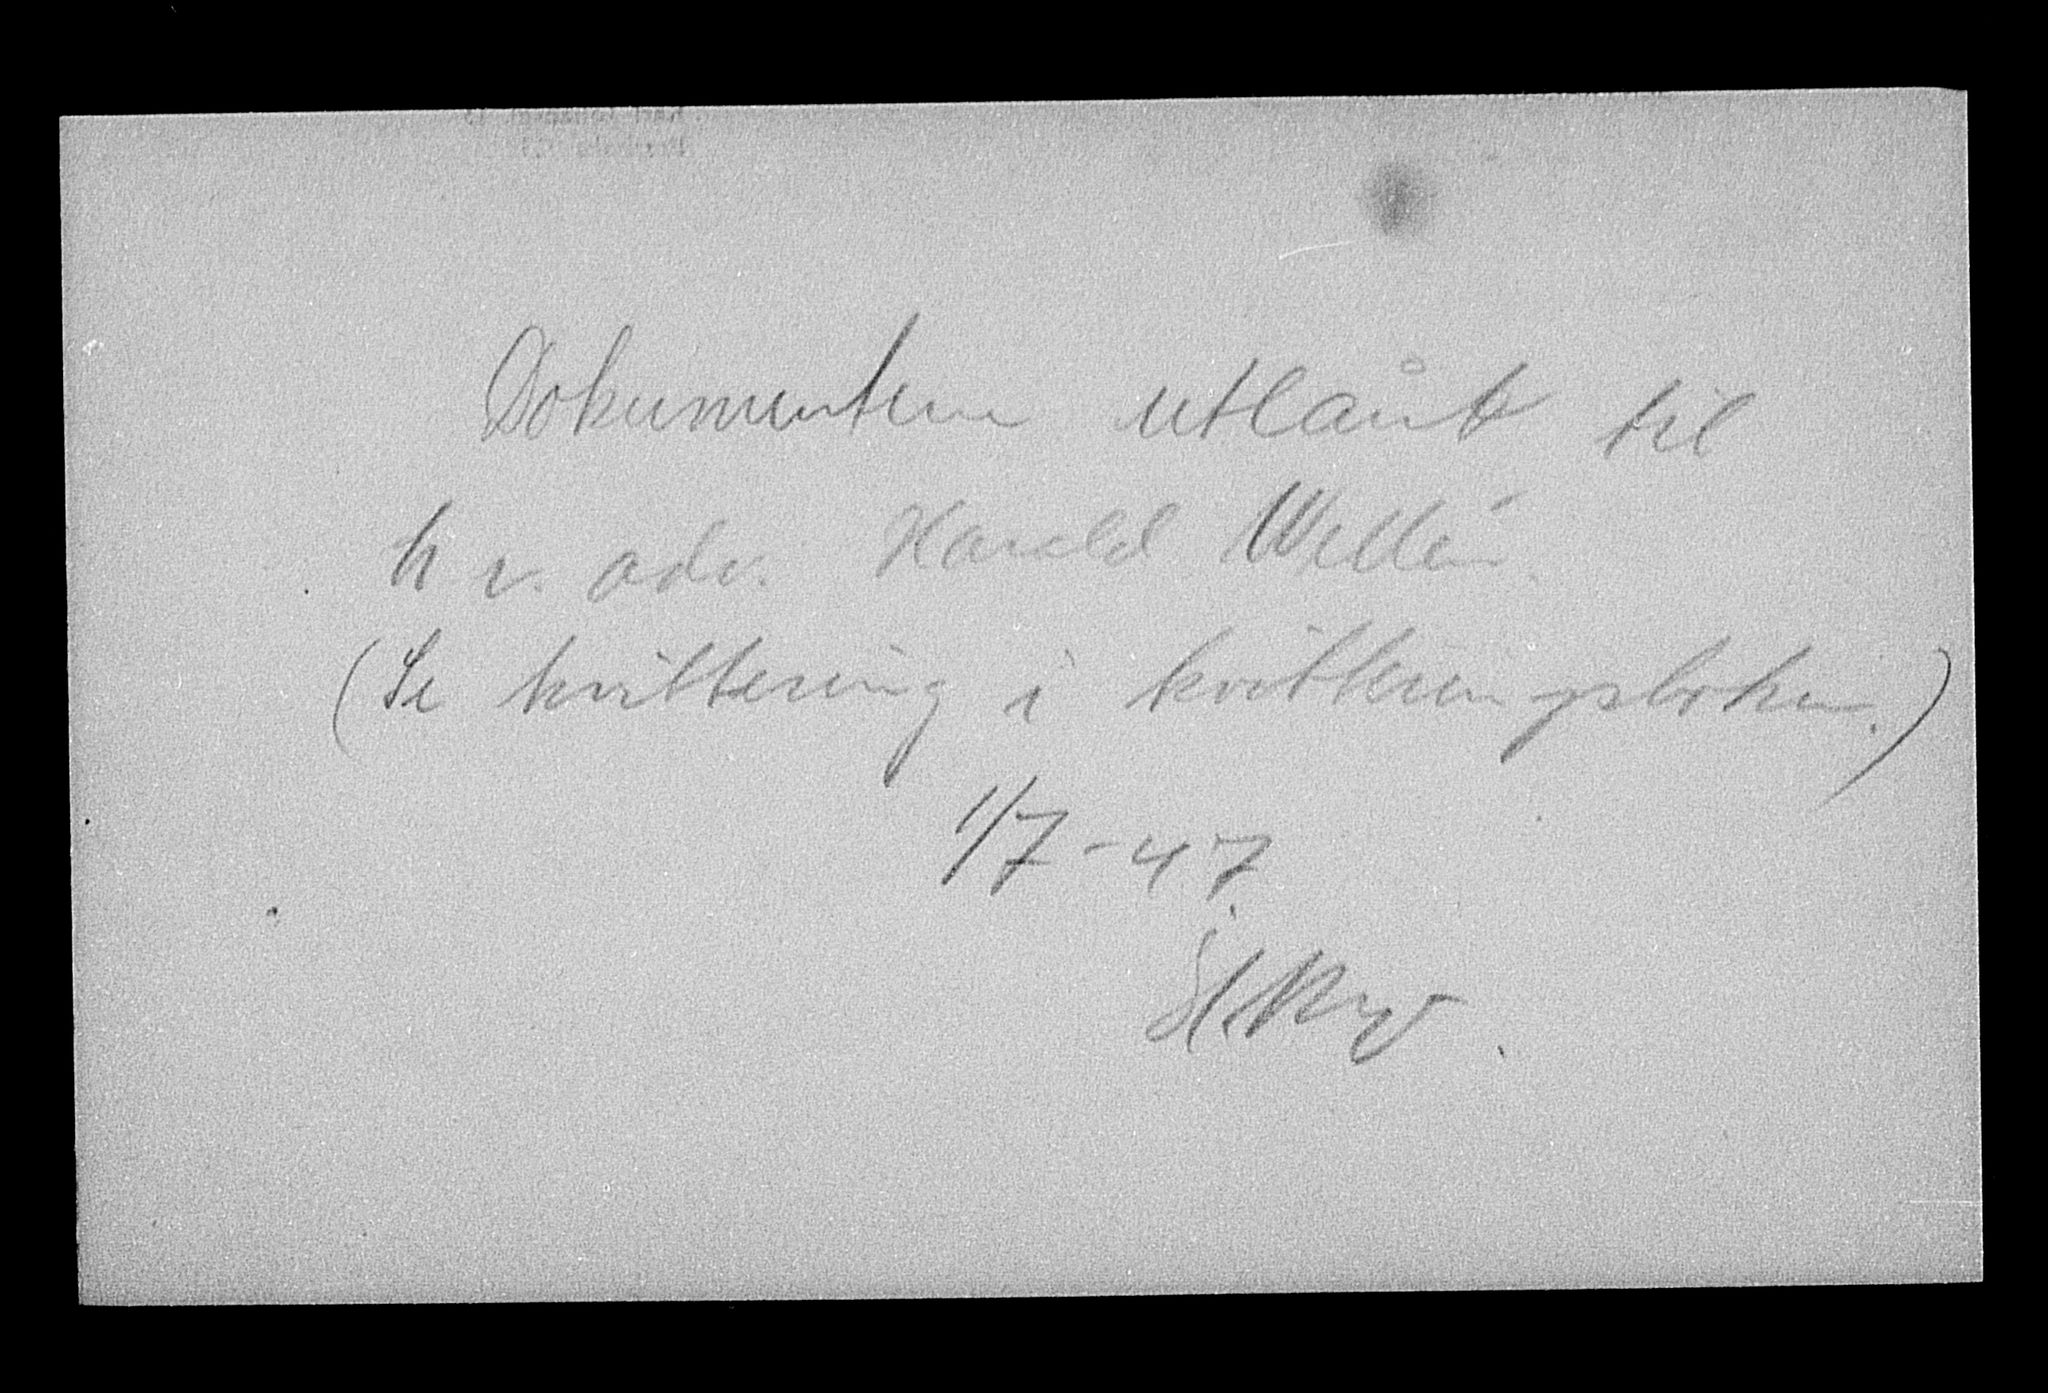 Dokumentene utlånt til
h r. adv. Harald Wellén.
(Se kvittering i kvitteringsboken.)
1/7-47.